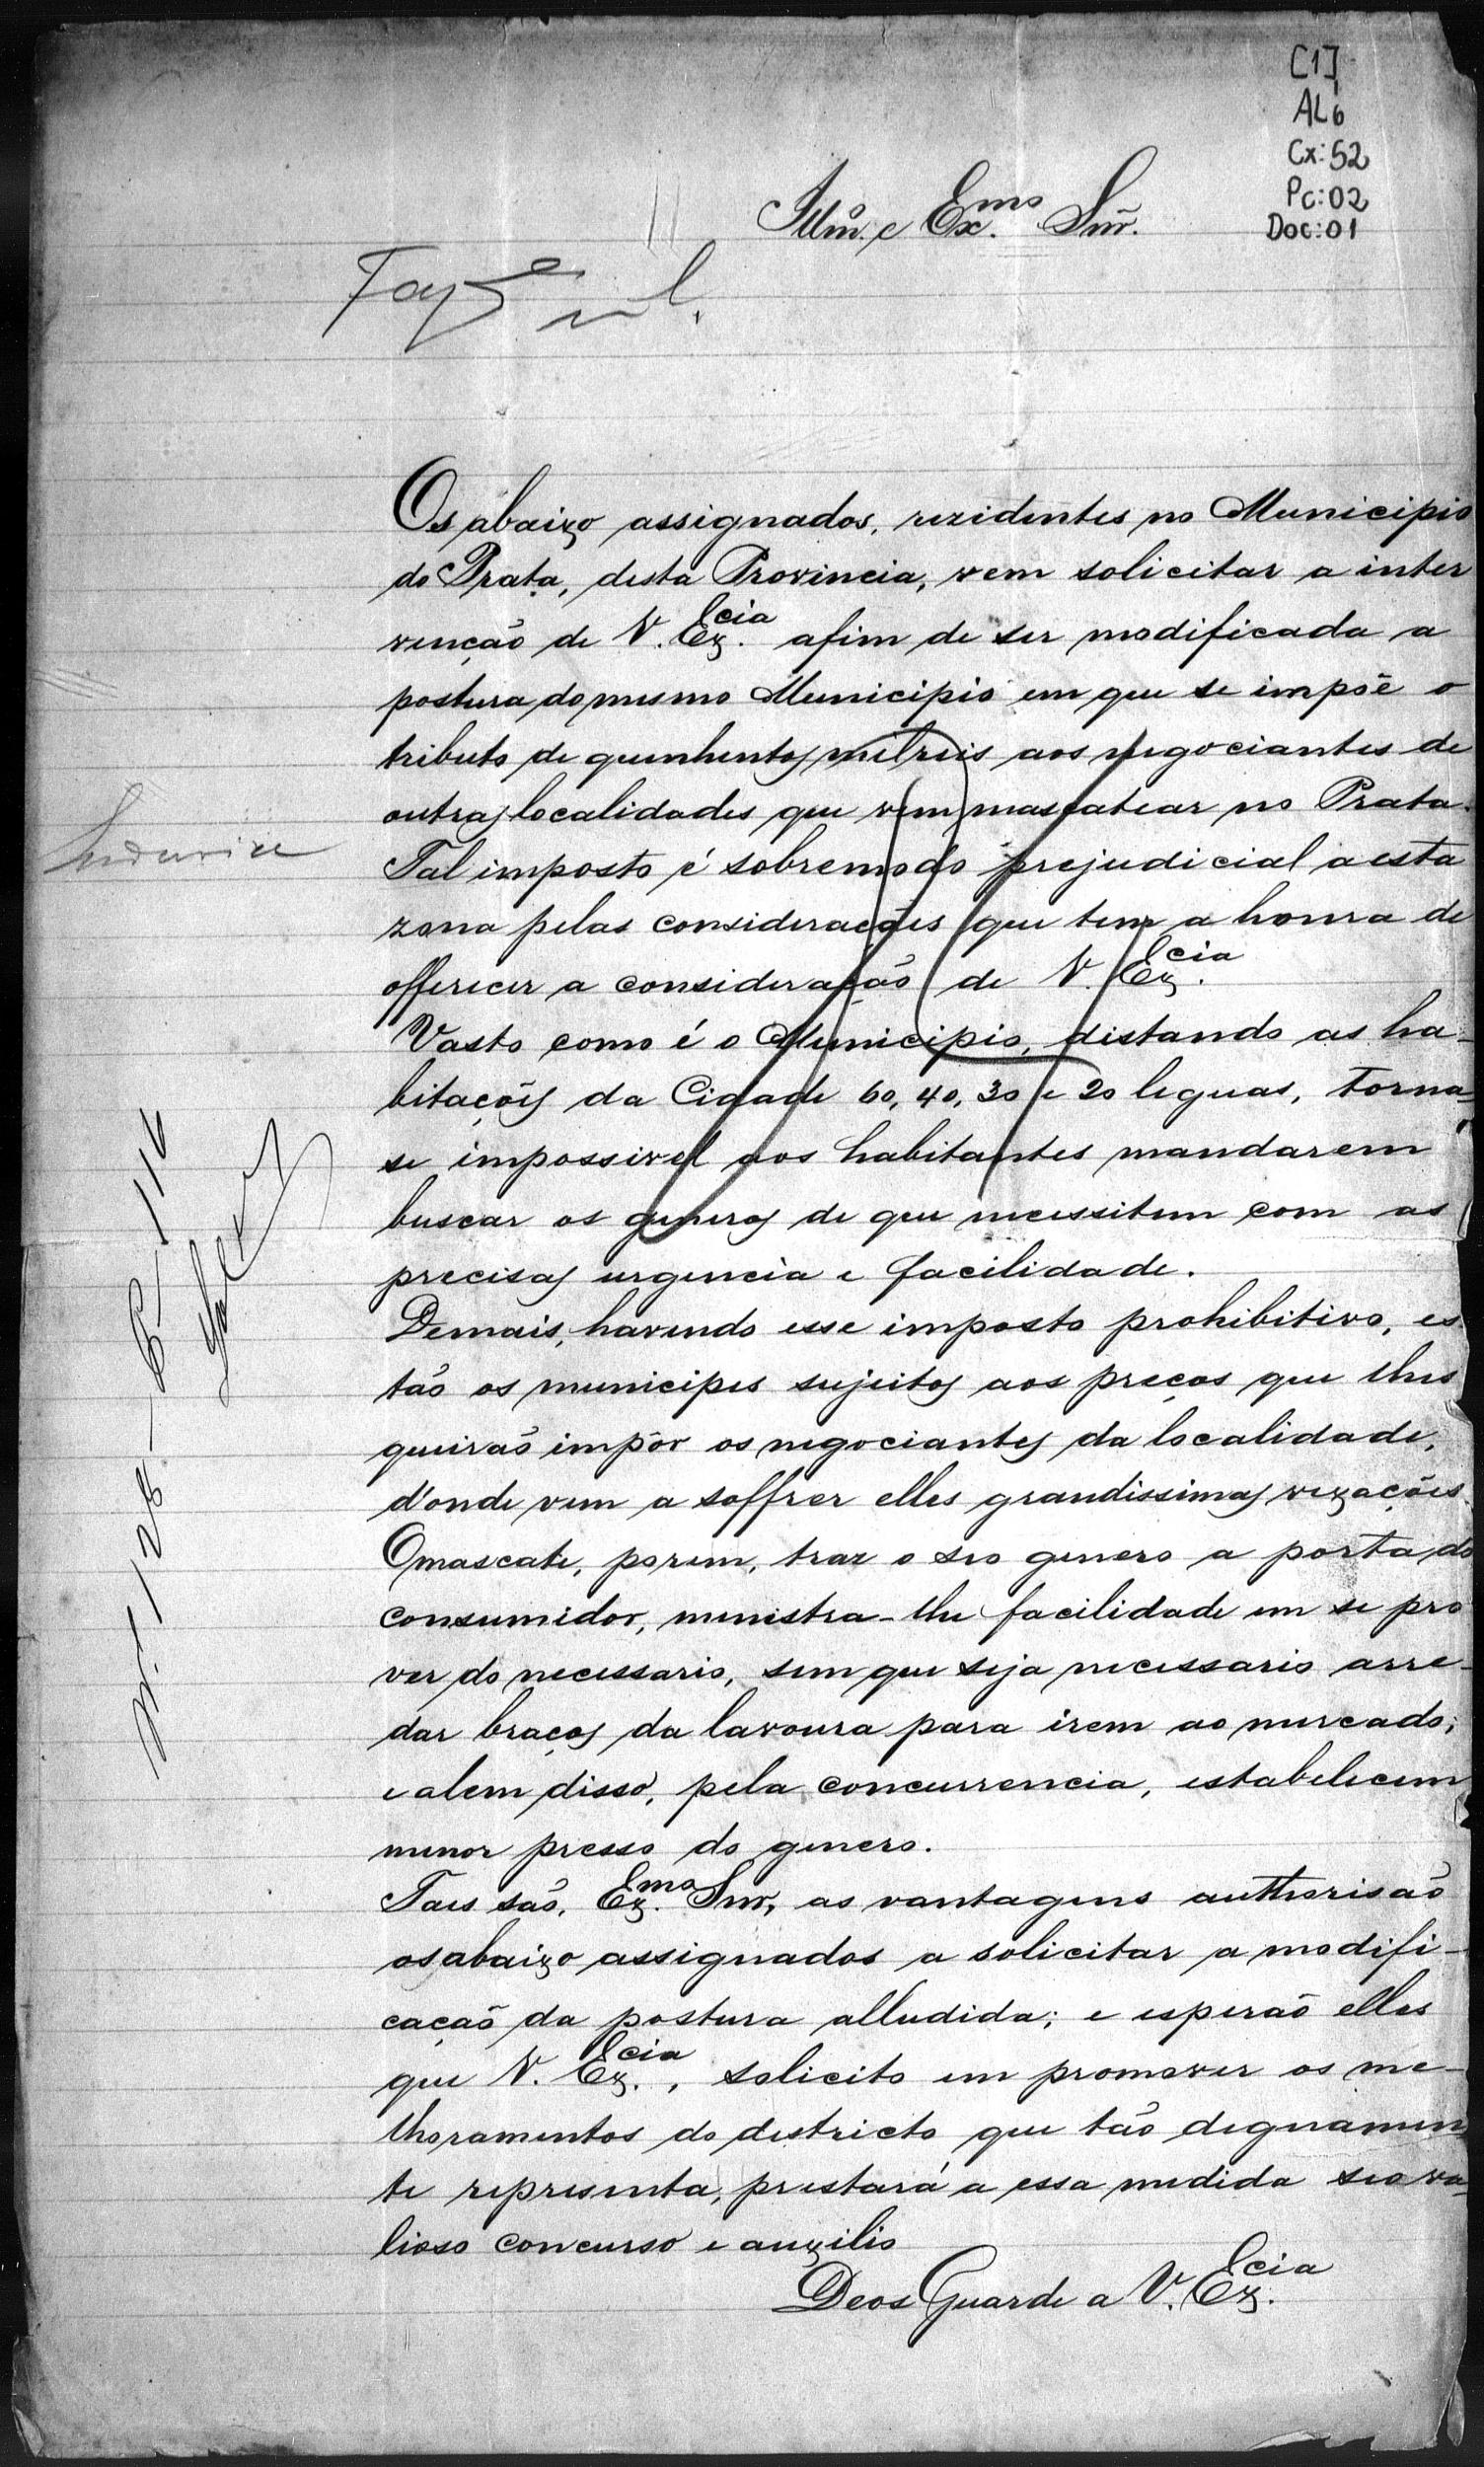 [1]
AL6
Cx:52
Pc:02
Doc:01
Illm.º e Ex.mo Snr.
Os abaixo assignados, rezidentes no Municipio
do Prata, desta Provincia, vem solicitar a inter
venção de V. Ex.cia afim de ser modificada a
postura do mesmo Municipio em que se impõe o
tributo de quinhentos milreis aos negociantes de
outras localidades que vem mascatear no Prata.
Tal imposto é sobremodo prejudicial a esta
zona pelas considerações que tem a honra de
offerecer a consideração de V. Ex.cia
Vasto como é o Municipio, distando as ha-
bitações da Cidade 60, 40, 30 e 20 leguas, torna-
se impossivel aos habitantes mandarem
buscar os generos de que necessitem com as
precisas urgencia e facilidade.
Demais, havendo esse imposto prohibitivo, es-
tão os municipes sujeitos aos preços que lhes
queirão impôr os negociantes da localidade,
d'onde vem a soffrer elles grandissimas vexações.
O mascate, porem, traz o seo genero a porta do
consumidor, ministra-lhe facilidade em se pro
ver do necessario, sem que seja necessario arre-
dar braços da lavoura para irem ao mercado;
e alem disso, pela concurrencia, estabelecem
menor presso do genero.
Taes são, Ex.mo Snr, as vantagens authorisão
os abaixo assignados a solicitar a modifi-
cação da postura alludida; e esperão elles
que V. Ex.cia, solicito em promover os me-
lhoramentos do districto que tão dignamen
te representa, prestará a essa medida seo va-
lioso concurso e auxilio
Deos Guarde a V. Ex.cia